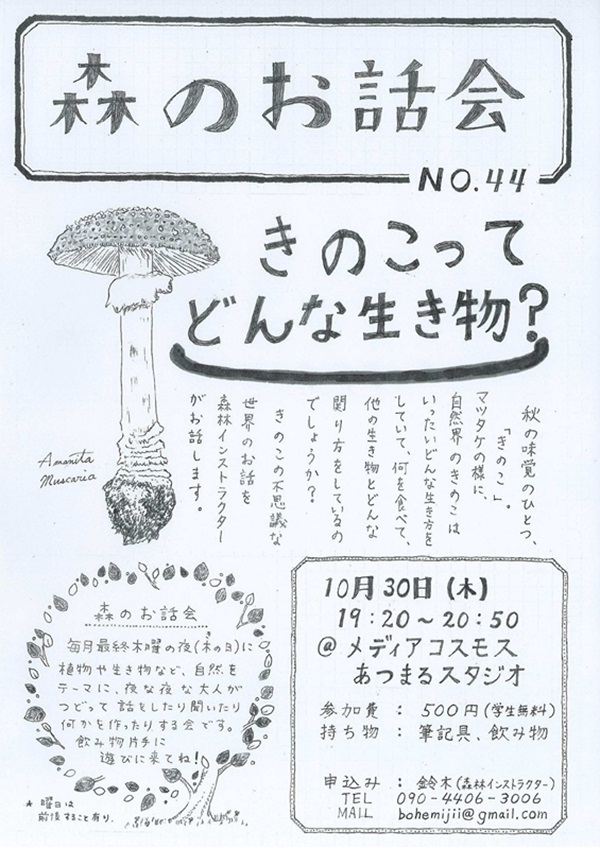 森のお話会
NO.44
きのこって
どんな生き物?
秋の味覚のひとつ、
「きのこ」。
マツタケの様に、
自然界のきのこは
いったいどんな生き方を
していて、何を食べて、
他の生き物とどんな
関り方をしているの
でしょうか?
きのこの不思議な
世界のお話を
森林インストラクター
がお話します。
Amanita
Muscaria
森のお話会
毎月最終木曜の夜(木の日)に
植物や生き物など、自然を
テーマに、夜な夜な大人が
つどって話をしたり聞いたり
何かを作ったりする会です。
飲み物片手に
遊びに来てね!
* 曜日は
前後すること有り。
10月30日(木)
19:20~20:50
@メディアコスモス
あつまるスタジオ
参加費 : 500円(学生無料)
持ち物 : 筆記具、飲み物
申込み : 鈴木(森林インストラクター)
TEL 090-4406-3006
MAIL bohemijii@gmail.com